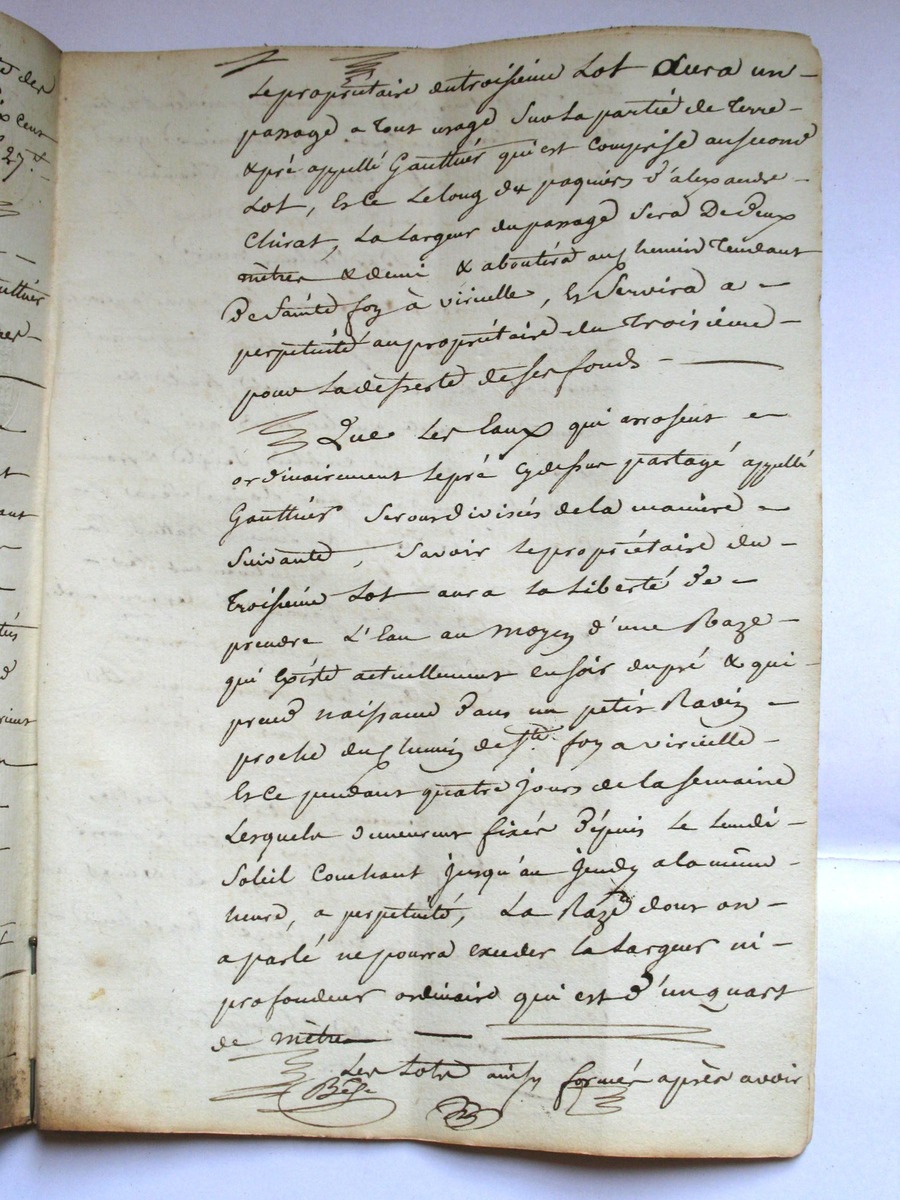 Le propriétaire du troisieme Lot Aura un
passage a tout usage Sur La partie de Terre
& pré appellé Gauthier qui est Comprise au second
Lot, Et Ce Le long des paquiers d'alexandre
Chirat, La Largeur du passage Sera De Deux
mètres & demi & aboutira au chemin Tendant
De Sainte foy à viricelle, Et Servira a
perpetuité au propriétaire du Troisième
pour La desserte de ses fonds.
Que Les Eaux qui arrosent
ordinairement le pré cy dessus partagé appellé
Gauthier Seront divisées de la manière
Suivante, Savoir le propriétaire du
Troisieme Lot aura La Liberté De
prendre L'Eau au moyen d'une Raze
qui Existe actuellement en soir du pré & qui
prend naissance Dans un petit Ravin
proche du Chemin de Ste. foy a viricelle
Et Ce pendant quatre Jours de la Semaine
Lesquels demeurent fixés Dépuis Le Lundi
Soleil Couchant Jusqu'au Jeudy a la même
heure, a perpetuité, La Raze dont on
a parlé ne pourra exceder la Largeur ni
profondeur ordinaire qui est D'un quart
de mètre
Les Lots ainsy formés après avoir
uthier
27